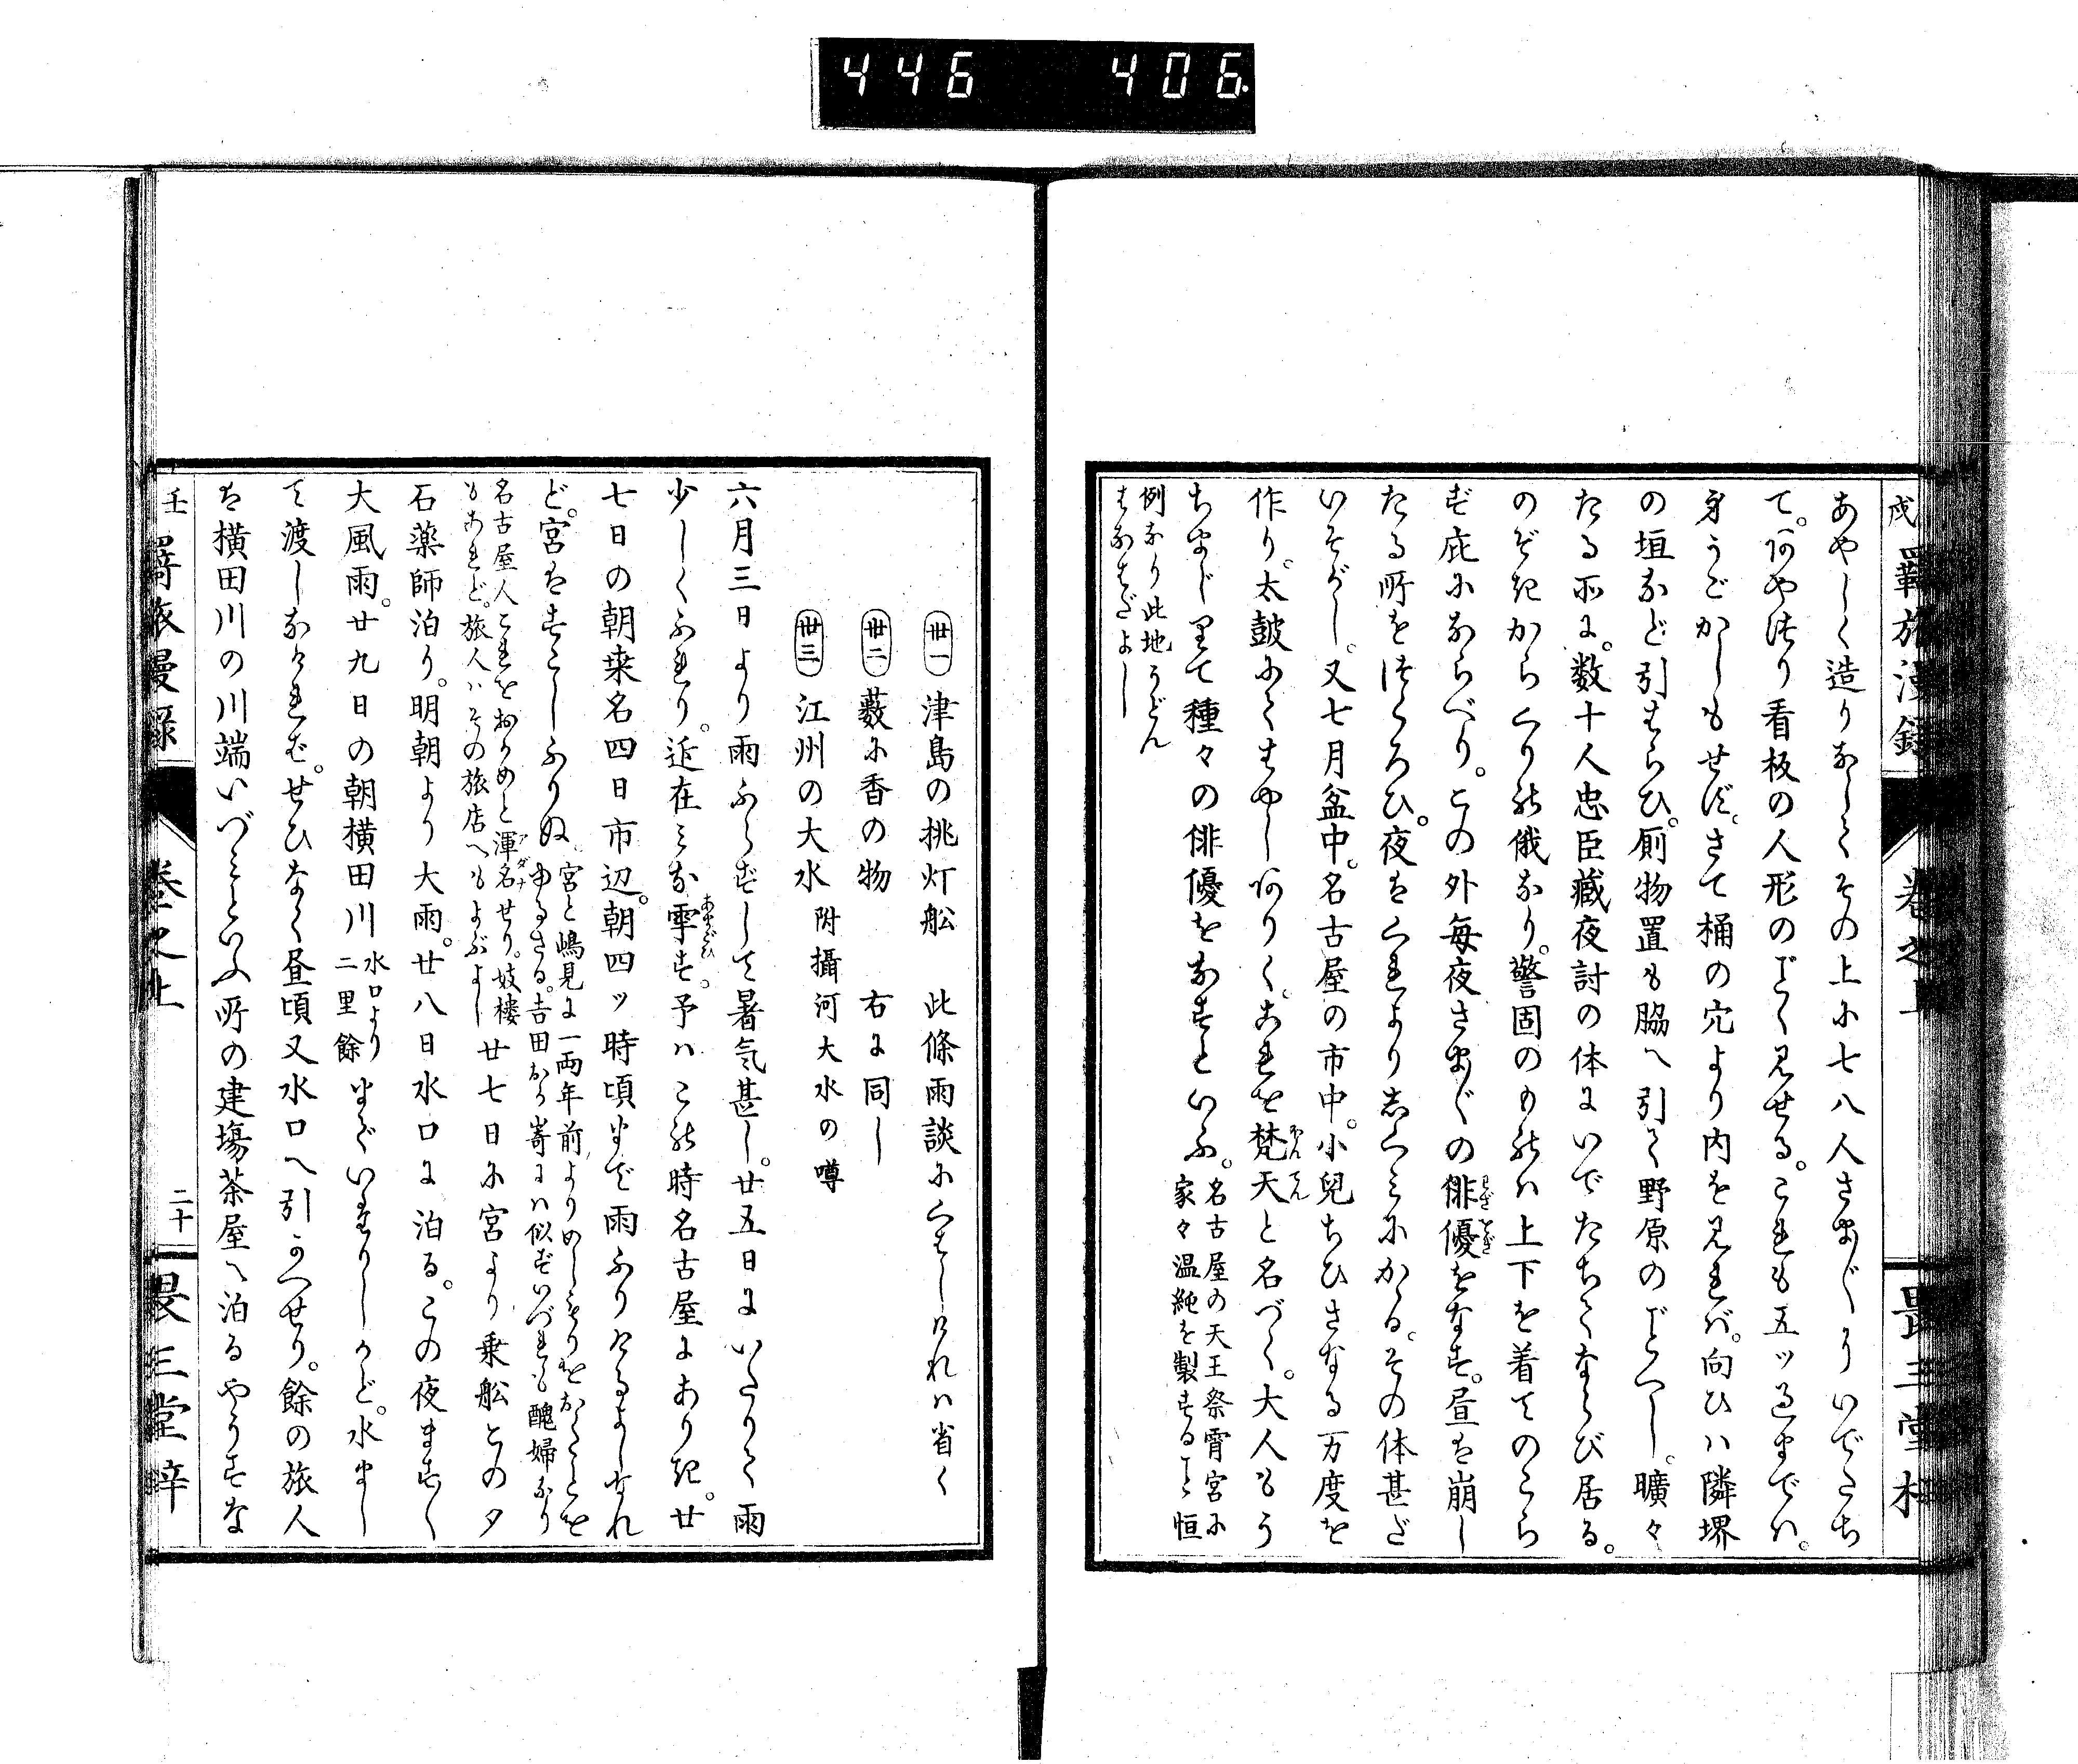 446 406
戌 羇旅漫録 巻之上 畏三堂梓
あやしく造りなしてその上に七八人さまざまにいでたち
て。何やつり看板の人形のごとく見せる。これも五ツ過まで也。
身うごかしもせず。さて桶の穴より内を見れバ。向ひハ隣堺
の垣など引はらひ。厠物置も脇へ引て野原のごとくし。曠々
たる所に。数十人忠臣藏夜討の体にいでたちてならび居る。
のぞきからくりの俄なり。警固のものハ上下を着てのこら
ず庇にならべり。この外毎夜さまざまの俳優をなす。昼は崩し
たる所をつくろひ。夜はくれよりしくみにかゝる。その体甚だ
いそがし。又七月盆中。名古屋の市中。小兒ちひさなる万度を
作り。太鼓にてはやしありく。これを梵天と名づく。大人もう
ちまじりて種々の俳優をなすといふ。名古屋の天王祭宵宮に
家々温純を製することゝ恒
例なり此地うどん
はなはだよし
卅一 津島の挑灯舩 此條雨談にくはしけれハ省く
卅二 藪に香の物 右に同し
卅三 江州の大水 附攝河大水の噂
六月三日より雨ふらずして暑気甚し。廿五日にいたりて雨
少しくふれり。近在みな雩す。予ハこの時名古屋にありき。廿
七日の朝桒名四日市辺。朝四ッ時頃まで雨ふりけるよしなれ
ど。宮はすこしふりぬ。宮と嶋見に一両年前よりめしもりをおくことを
ゆるさる。吉田おか嵜にハ似ずいづれも醜婦なり
名古屋人これをおかめと渾名せり。妓樓
もあれど。旅人ハその旅店へもよぶよし
廿七日に宮より乗舩との夕
石薬師泊り。明朝より大雨。廿八日水口に泊る。この夜ますく
大風雨。廿九日の朝横田川 水口より
二里餘 までいたりしかど。水まし
て渡しなけれバ。せひなく昼頃又水口へ引かへせり。餘の旅人
は横田川の川端いづミといふ所の建場茶屋へ泊るやうすな
壬 羇旅漫録 巻之上 二十 畏三堂梓